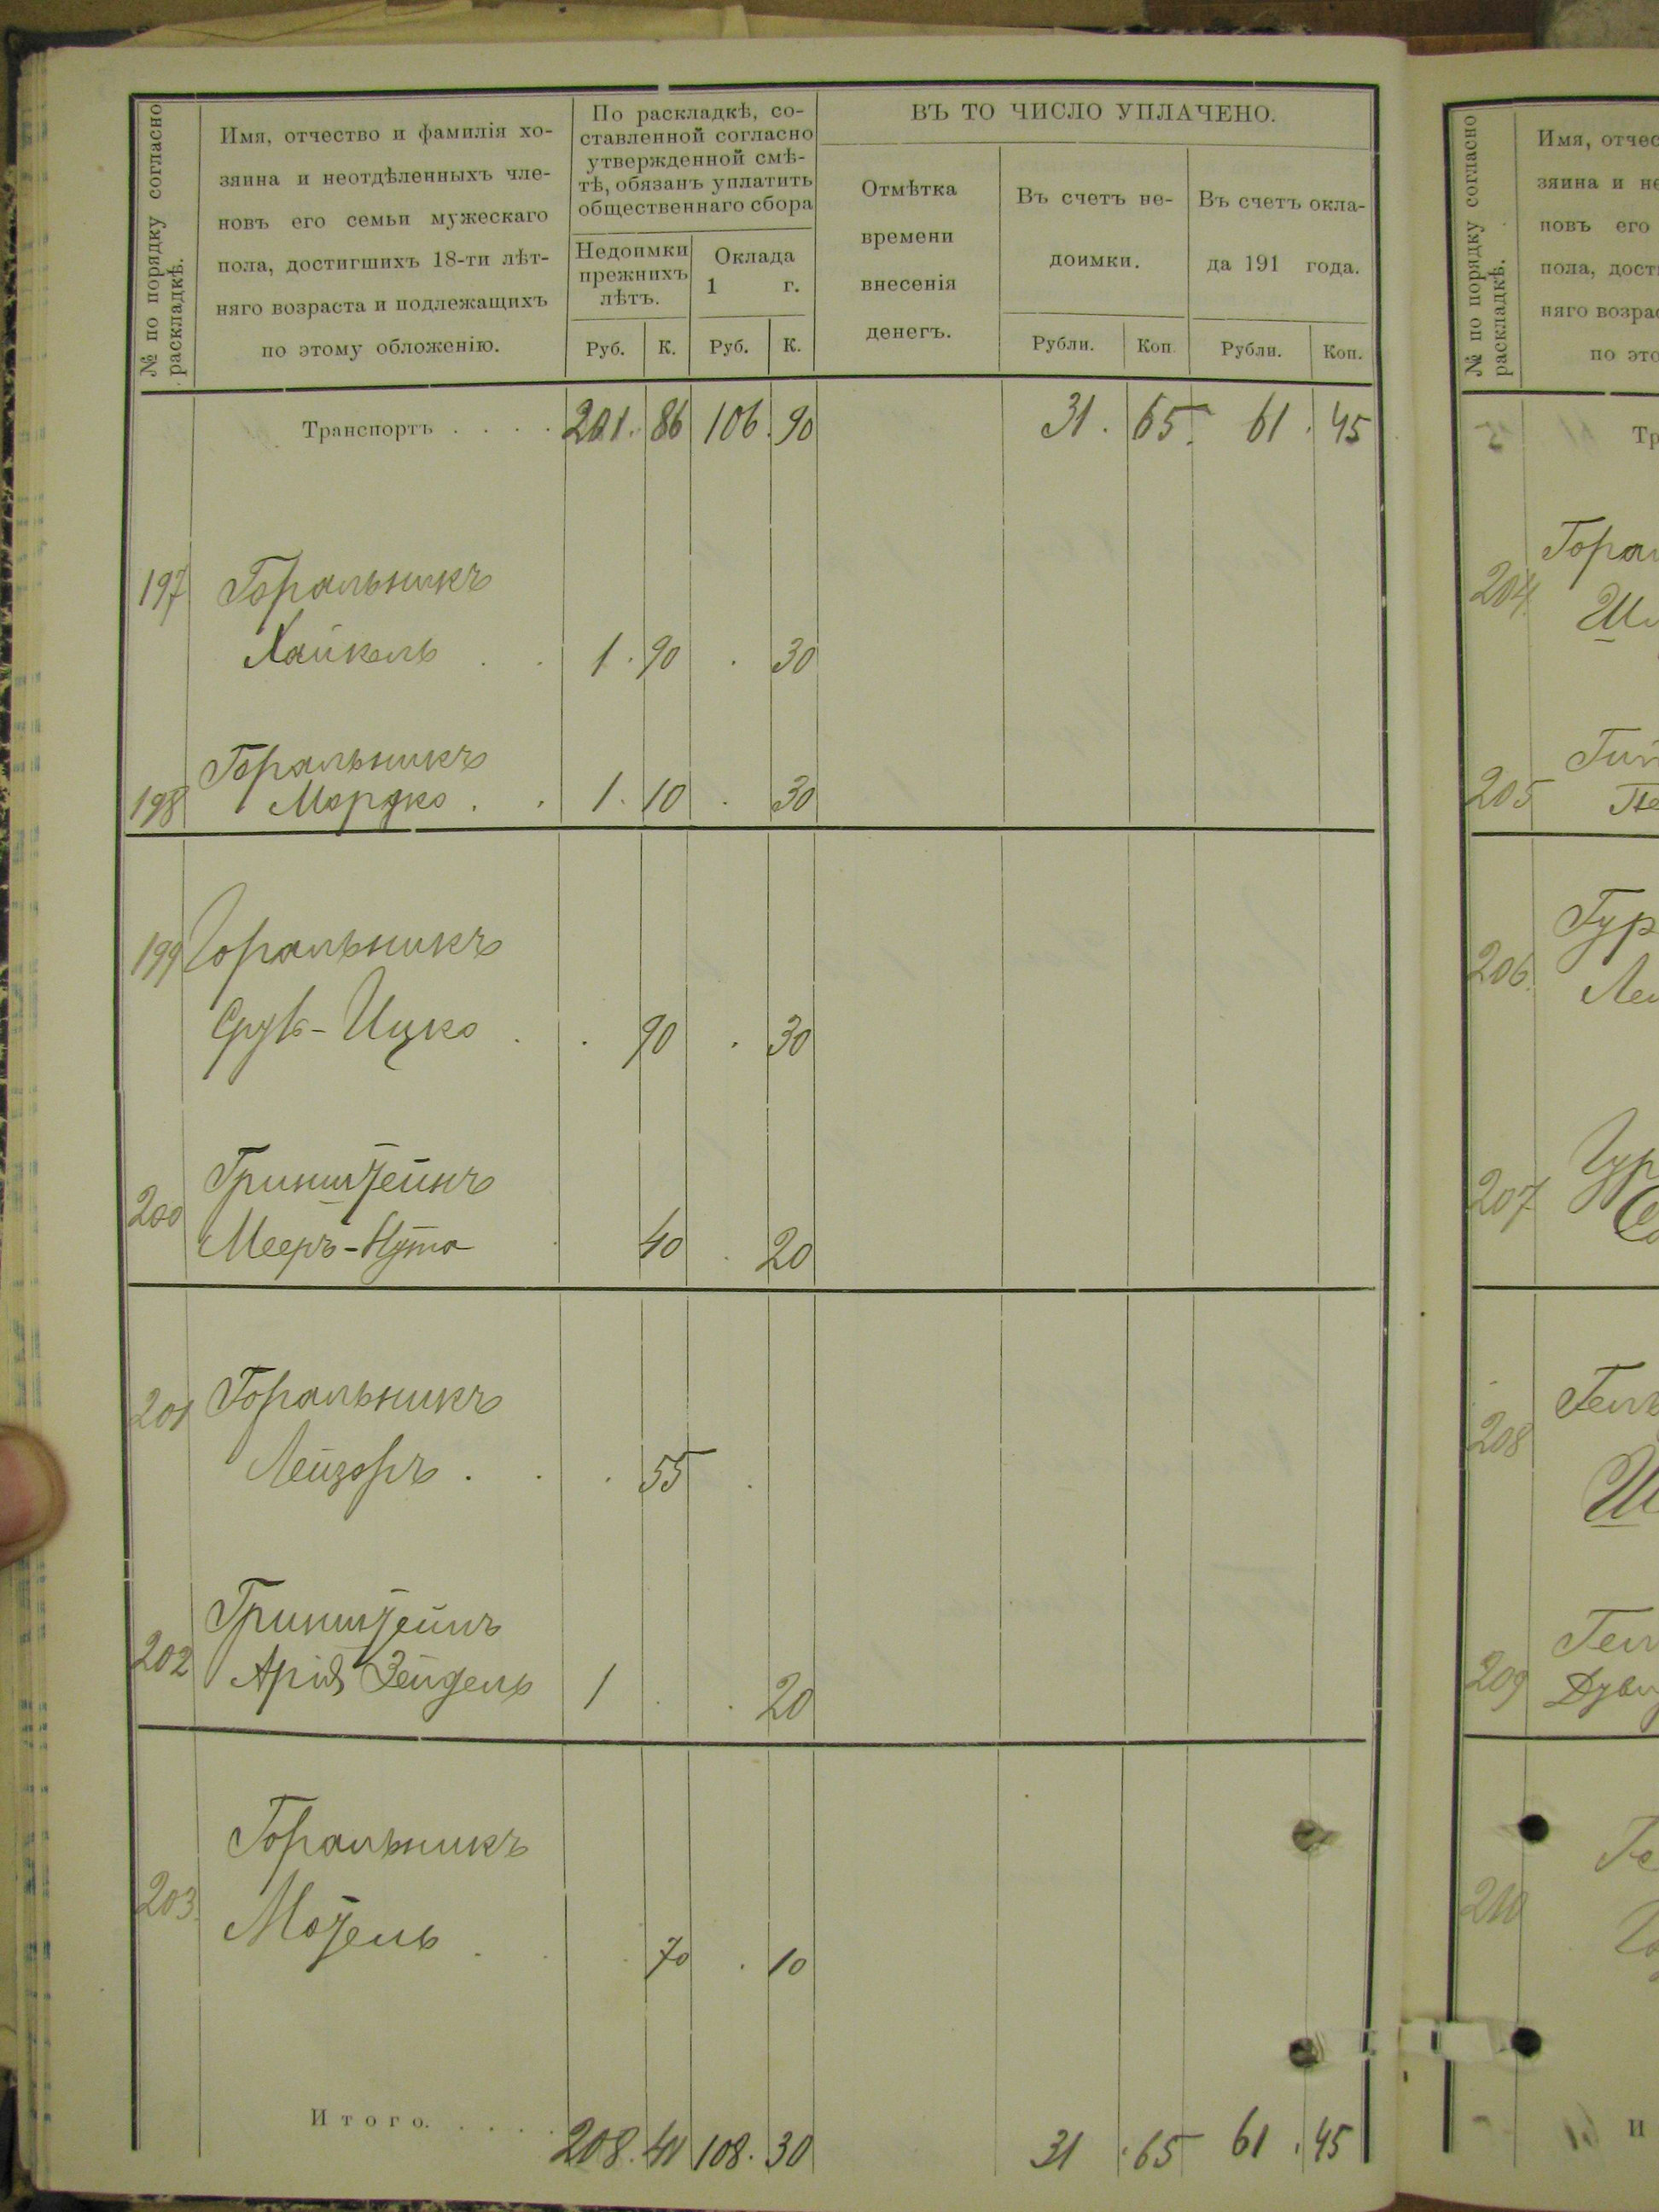 № по порядку согласно
раскладкѣ.
Имя, отчество и фамилія хо-
зяина и неотдѣленныхъ чле-
новъ его семьи мужескаго
пола, достигшихъ 18-ти лѣт-
няго возраста и подлежащихъ
по этому обложенію.
По раскладкѣ, со-
ставленной согласно
утвержденной смѣ-
тѣ, обязанъ уплатить
общественнаго сбора
Недоимки
прежнихъ
лѣтъ.
Оклада
1 г.
Руб. К. Руб. К.
ВЪ ТО ЧИСЛО УПЛАЧЕНО.
Отмѣтка
времени
внесенія
денегъ.
Въ счетъ не-
доимки.
Въ счетъ окла-
да 191 года.
Рубли. Коп. Рубли. Коп.
Транспортъ . . . . 201. 86 106. 90 31. 65. 61. 45
197 Горальникъ
Хайкель . . 1. 90 . 30
Горальникъ
198 Мордко . . 1. 10 . 30
199 Горальникъ
Сруль-Ицко . . 90 . 30
Гринштейнъ
200
Мееръ-Нута . 40 . 20
201 Горальникъ
Лейзоръ . . . 55 .
Гринштейнъ
202 Арія Зейдель 1 . . 20
Горальникъ
203.
Мотель . . . 70 . 10
Итого. . . . . 208. 41 108. 30 31 . 65 61 . 45
№ по порядку согласно
раскладкѣ.
Имя, отчес
зяина и не
новъ его
пола, дост
няго возра
по это
Тр
Горал
204.
205
Гур
206.
207
208
209
210
И